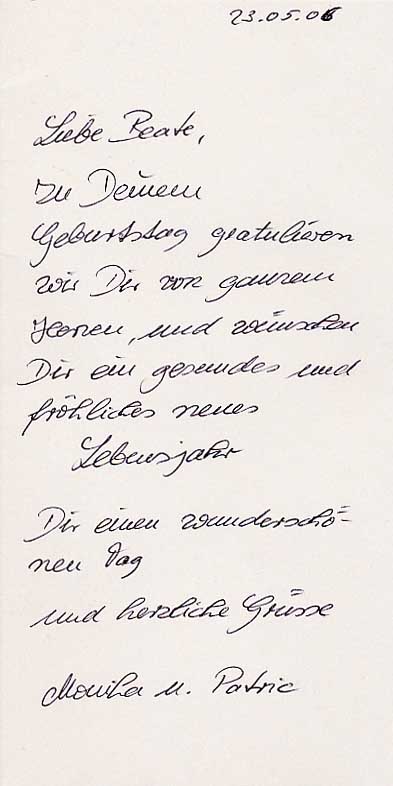 23.05.06
Liebe Beate,
zu Deinem
Geburtstag gratulieren
wir Dir von ganzem
Herzen, und wünschen
Dir ein gesundes und
fröhliches neues
Lebensjahr
Dir einen wunderschö-
nen Tag
und herzliche Grüsse
Monika u. Patric